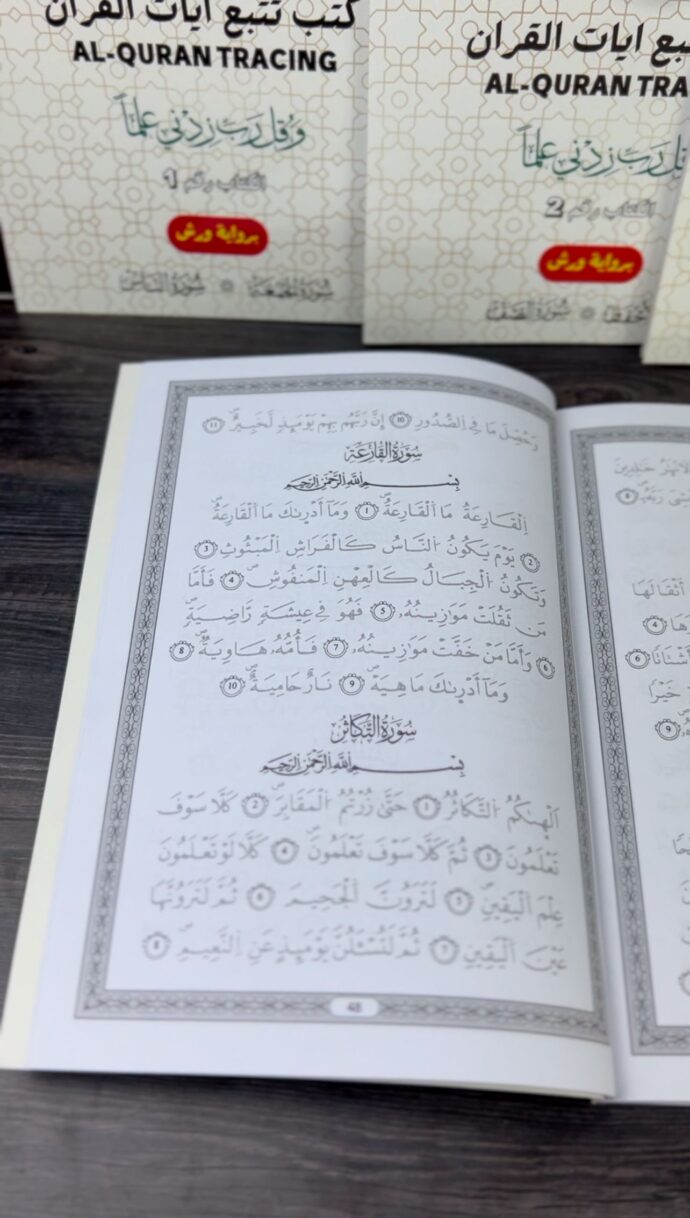 كتب تتبع آيات القرآن
AL-QURAN TRACING
وَقُل رَبِّ زِدْنِي عِلْماً
الكتاب رقم 1
برواية ورش
سُورَةُ الجُمُعَة * سُورَةُ النَّاس
تبع ايات القران
AL-QURAN TRA
قُل رَبِّ زِدْنِي عِلْماً
الكتاب رقم 2
برواية ورش
سُورَةُ الصَّفّ
وَحُصِّلَ مَا فِي اِلصُّدُورِ 10 إِنَّ رَبَّهُم بِهِمْ يَوْمَئِذٍ لَّخَبِيرٌ 11
سُورَةُ القَارِعَةِ
بِسْمِ اللَّهِ الرَّحْمَٰنِ الرَّحِيمِ
اِلْقَارِعَةُ مَا اَلْقَارِعَةُ 1 وَمَا أَدْرِيٰكَ مَا اَلْقَارِعَةُ
2 يَوْمَ يَكُونُ اُلنَّاسُ كَالْفَرَاشِ اِلْمَبْثُوثِ 3
وَتَكُونُ اُلْجِبَالُ كَالْعِهْنِ اِلْمَنفُوشِ 4 فَأَمَّا
مَن ثَقُلَتْ مَوَٰزِينُهُۥ 5 فَهُوَ فِي عِيشَةٍ رَّاضِيَةٍ
6 وَأَمَّا مَنْ خَفَّتْ مَوَٰزِينُهُۥ 7 فَأُمُّهُۥ هَاوِيَةٌ 8
وَمَا أَدْرِيٰكَ مَا هِيَهْ 9 نَارٌ حَامِيَةٌ 10
سُورَةُ التَّكَاثُرِ
بِسْمِ اللَّهِ الرَّحْمَٰنِ الرَّحِيمِ
اَلْهِيٰكُمُ اُلتَّكَاثُرُ 1 حَتَّىٰ زُرْتُمُ اُلْمَقَابِرَ 2 كَلَّا سَوْفَ
تَعْلَمُونَ 3 ثُمَّ كَلَّا سَوْفَ تَعْلَمُونَ 4 كَلَّا لَوْ تَعْلَمُونَ
عِلْمَ اَلْيَقِينِ 5 لَتَرَوُنَّ اَلْجَحِيمَ 6 ثُمَّ لَتَرَوُنَّهَا
عَيْنَ اَلْيَقِينِ 7 ثُمَّ لَتُسْـَٔلُنَّ يَوْمَئِذٍ عَنِ اِلنَّعِيمِ 8
48
خَٰلِدِينَ
8
أَثْقَالَهَا
4
أَشْتَاتاً 6
خَيْراً
9